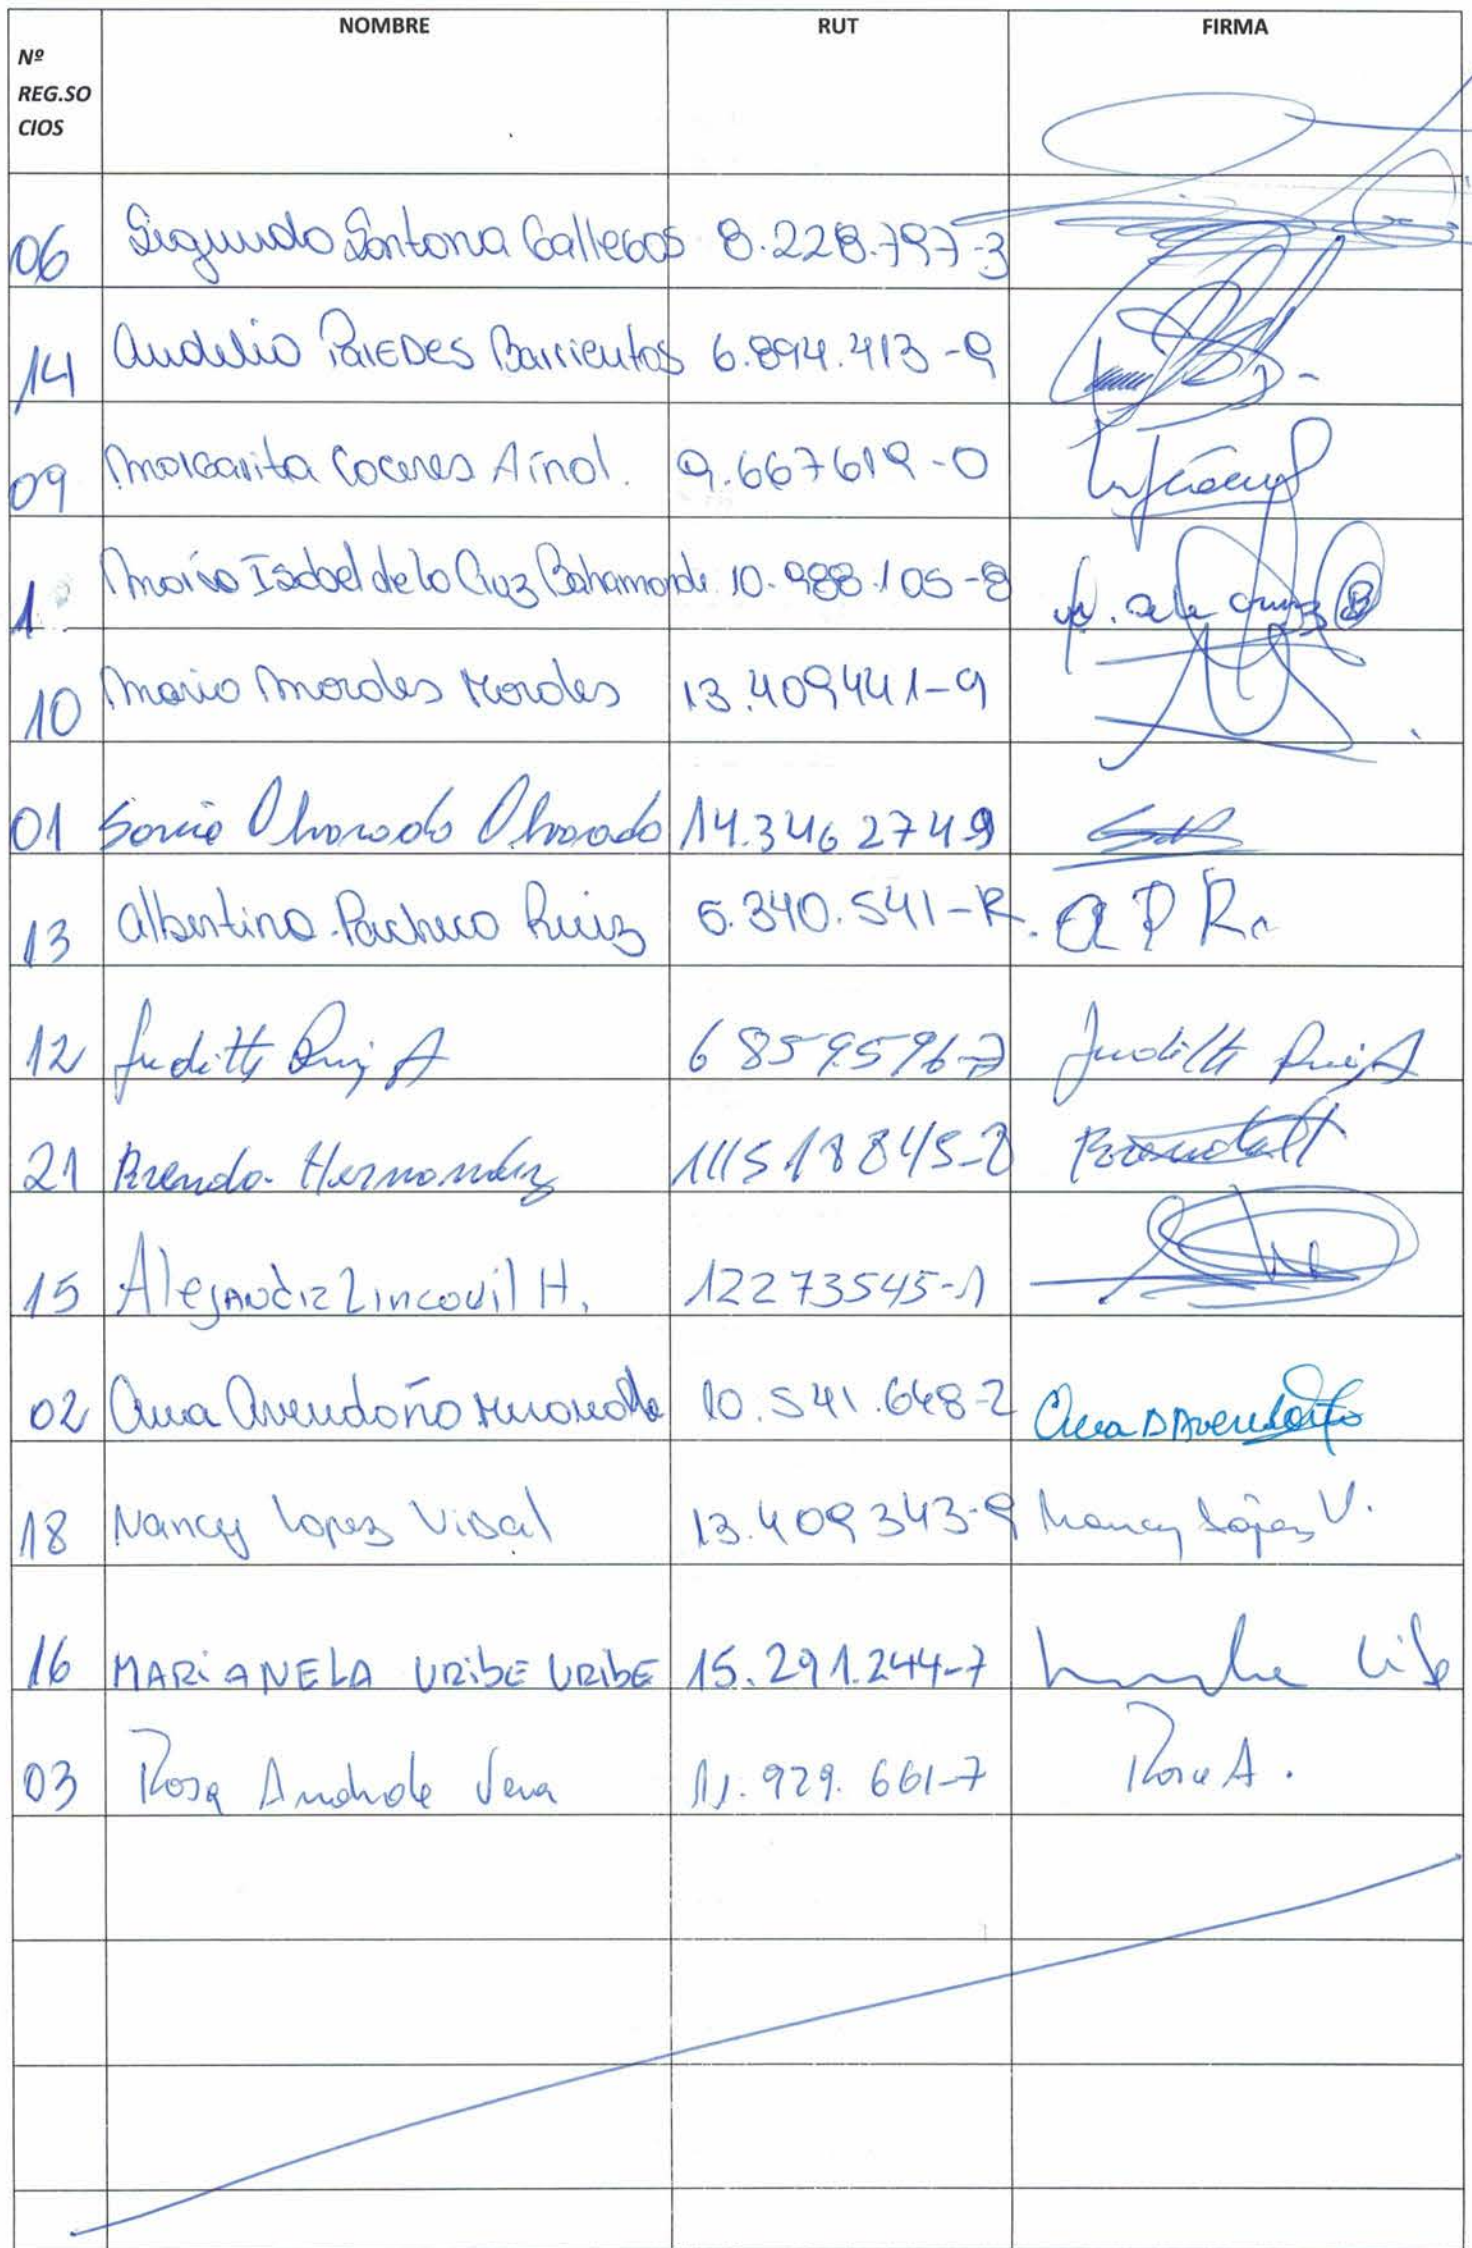 NOMBRE RUT FIRMA
Nº
REG.SO
CIOS
06 Segundo Santana Gallegos 8.228.797-3
14 Audelio PAREDES Barrientos 6.894.413-9
09 Margarita Coceres Ainol. 9.667619-0
1 Maria Isabel de la Cruz Bahamonde 10.988.105-8 de la Cruz B
10 Mario Morales Morales 13.409441-9
01 Sonia Alvarado Alvarado 14.346 274 9
13 Albertina Pacheco Ruiz 6.340.541-K. A P R.
12 Judith Ruiz A 6 859596-7 Judith Ruiz A
21 Brenda Hernandez 11518845-8 Brenda H
15 Alejandra Lincovil H. 12273545-1
02 Ana Avendaño 10.541.648-2 Ana D Avendaño
18 Nancy Lopez Vidal 13.409343-9 Nancy López V.
16 MARIANELA URIBE URIBE 15.291.244-7
03 Rosa Andrade Vera 11.929.661-7 Rosa A.